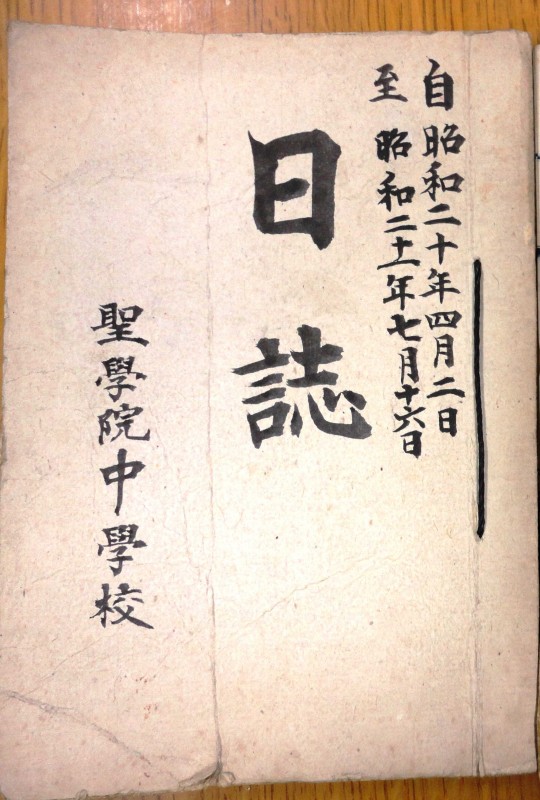 自昭和二十年四月二日
至昭和二十一年七月十六日
日誌
聖學院中學校